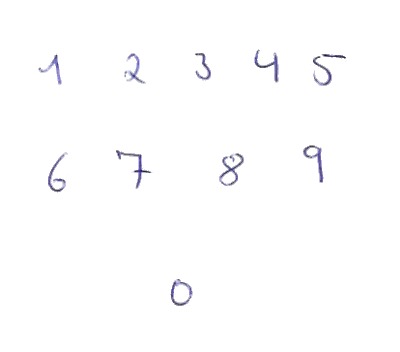 1 2 3 4 5
6 7 8 9
0